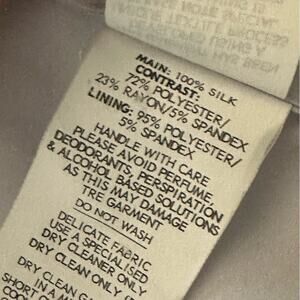 MAIN: 100% SILK
CONTRAST:
72% POLYESTER/
23% RAYON/5% SPANDEX
LINING: 95% POLYESTER/
5% SPANDEX
HANDLE WITH CARE
PLEASE AVOID PERFUME,
DEODORANTS, PERSPIRATION
& ALCOHOL BASED SOLUTIONS
AS THIS MAY DAMAGE
TRE GARMENT
DO NOT WASH
DELICATE FABRIC
USE A SPECIALISED
DRY CLEANER ONLY
DRY CLEAN ONLY (P)
DRY CLEAN
SHORT
IN A